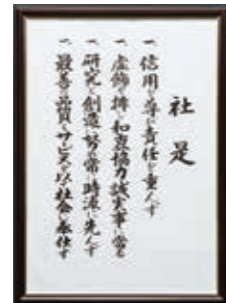 社是
一、信用を尊び責任を重んず
一、虚飾を排し和衷協力誠実事に当る
一、研究と創造に努め常に時流に先んず
一、最善の品質とサービスを以て社会に奉仕す